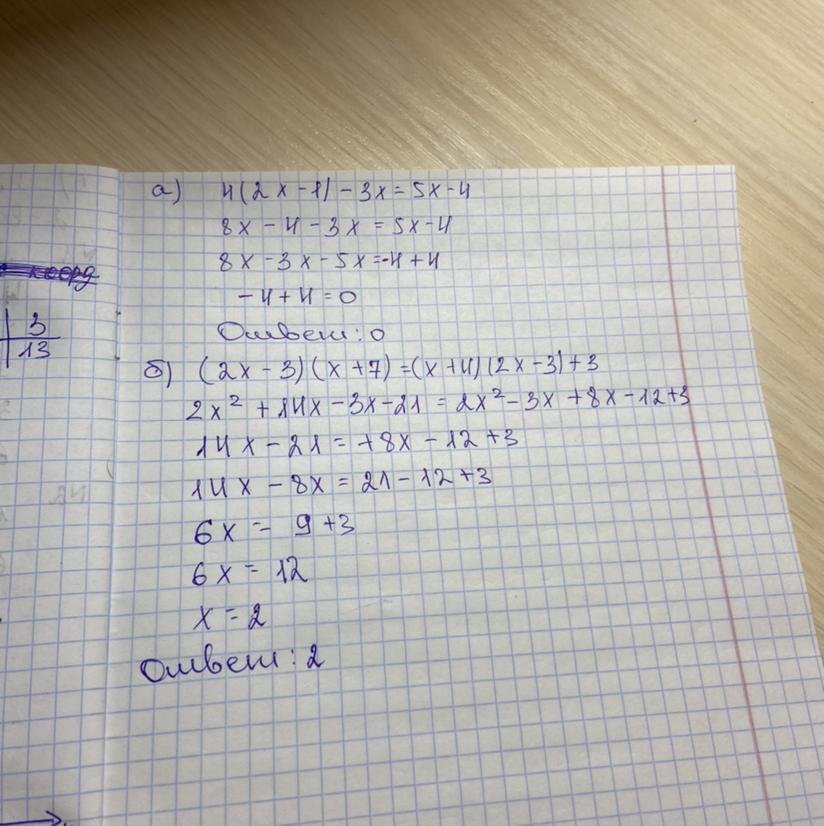 коорд
3
13
а) 4(2x-1)-3x=5x-4
8x-4-3x=5x-4
8x-3x-5x=-4+4
-4+4=0
Ответ: 0
б) (2x-3)(x+7)=(x+4)(2x-3)+3
2x²+14x-3x-21=2x²-3x+8x-12+3
14x-21=+8x-12+3
14x-8x=21-12+3
6x=9+3
6x=12
x=2
Ответ: 2